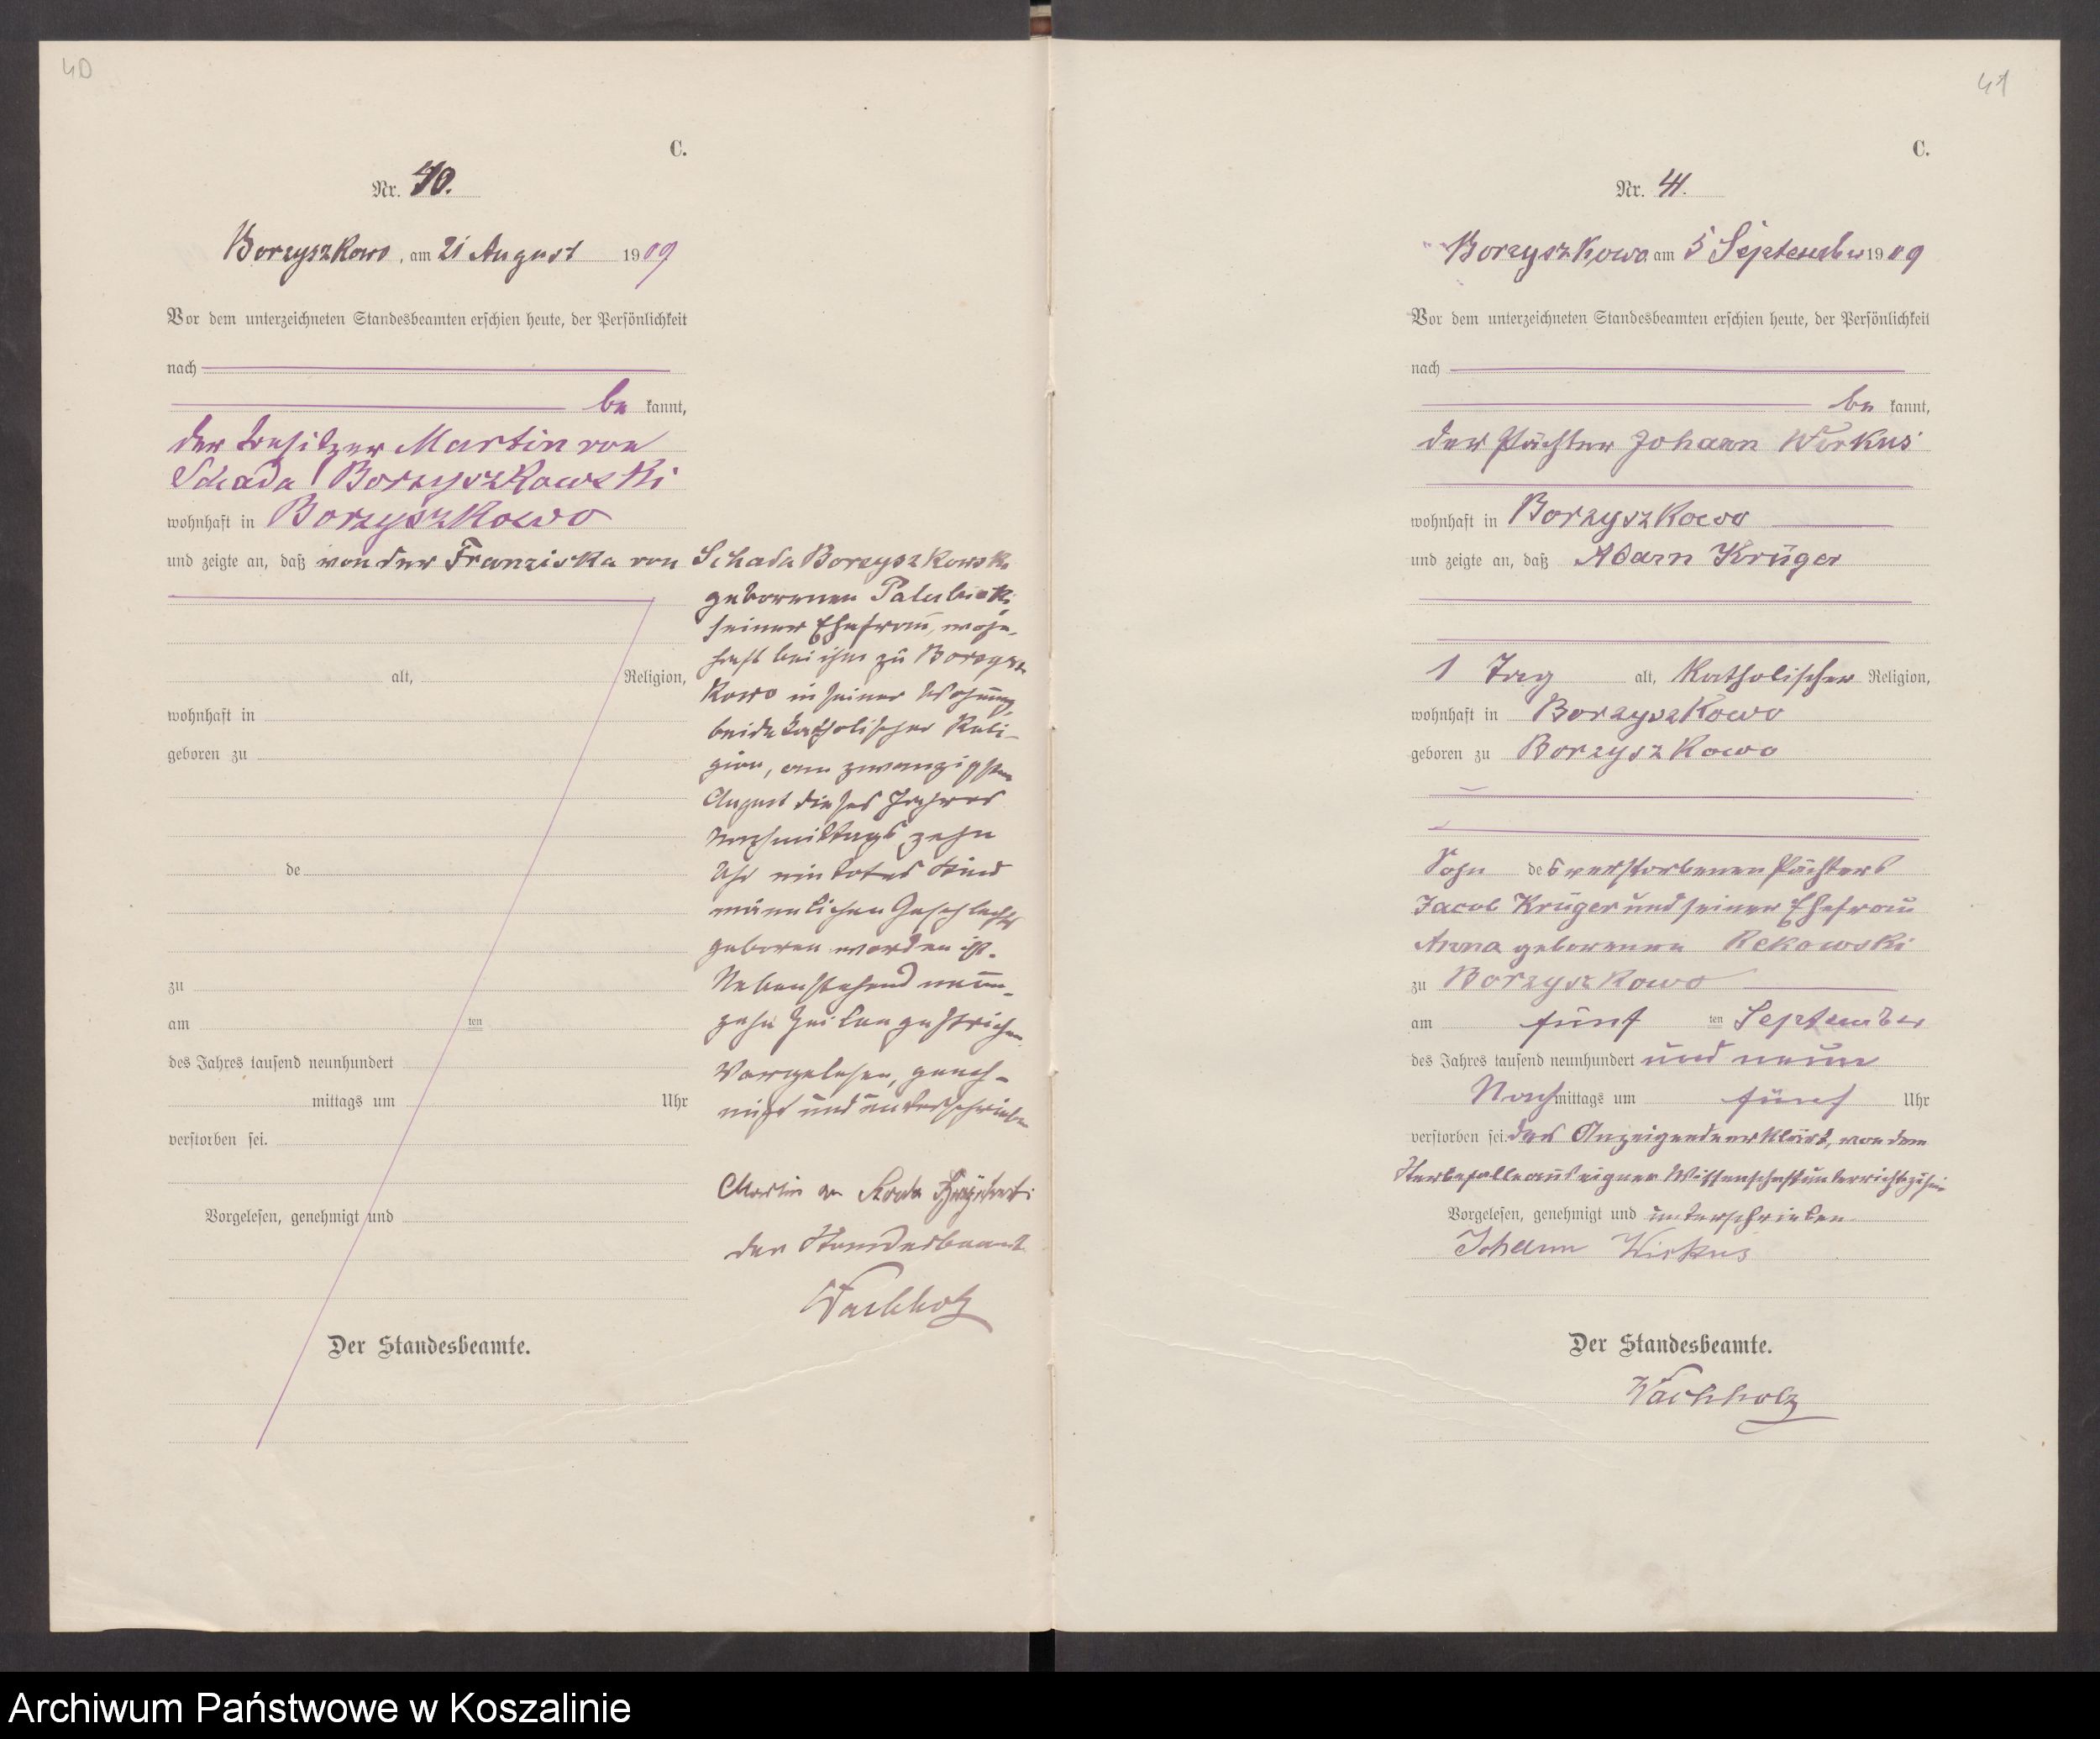 40
C.
Nr. 40.
Borzyszkowo, am 21 August 1909
Vor dem unterzeichneten Standesbeamten erschien heute, der Persönlichkeit
nach
be kannt,
der Besitzer Martin von
Schada Borzyszkowski
wohnhaft in Borzyszkowo
und zeigte an, daß von der Franziska von Schada Borzyszkowski
geborenen Palubicki
seiner Ehefrau, wohn-
haft bei ihm zu Borzysz-
kowo in seiner Wohnung,
beide katholischer Reli-
gion, am zwanzigsten
August dieses Jahres
Nachmittags zehn
Uhr ein totes Kind
männlichen Geschlechts
geboren worden ist.
Nebenstehend neun-
zehn Zeilen gestrichen.
Vorgelesen, geneh-
migt und unterschrieben
Martin von
der Standesbeamte
Wachholz
alt, Religion,
wohnhaft in
geboren zu
de
zu
am ten
des Jahres tausend neunhundert
mittags um Uhr
verstorben sei.
Vorgelesen, genehmigt und
Der Standesbeamte.
41
C.
Nr. 41.
Borzyszkowo am 5 September 1909
Vor dem unterzeichneten Standesbeamten erschien heute, der Persönlichkeit
nach
be kannt,
der Pächter Johann Wirkus
wohnhaft in Borzyszkowo
und zeigte an, daß Adam Krüger
1 Tag alt, katholischer Religion,
wohnhaft in Borzyszkowo
geboren zu Borzyszkowo
Sohn des verstorbenen Pächters
Jacob Krüger und seiner Ehefrau
Anna geborenen Rekowski
zu Borzyszkowo
am fünf ten September
des Jahres tausend neunhundert und neun
Nachmittags um fünf Uhr
verstorben sei. Der Anzeigende erklärt, von dem
Sterbefalle aus eigner Wissenschaft unterrichtet zu sein
Vorgelesen, genehmigt und unterschrieben
Johann Wirkus
Der Standesbeamte.
Wachholz
Archiwum Państwowe w Koszalinie